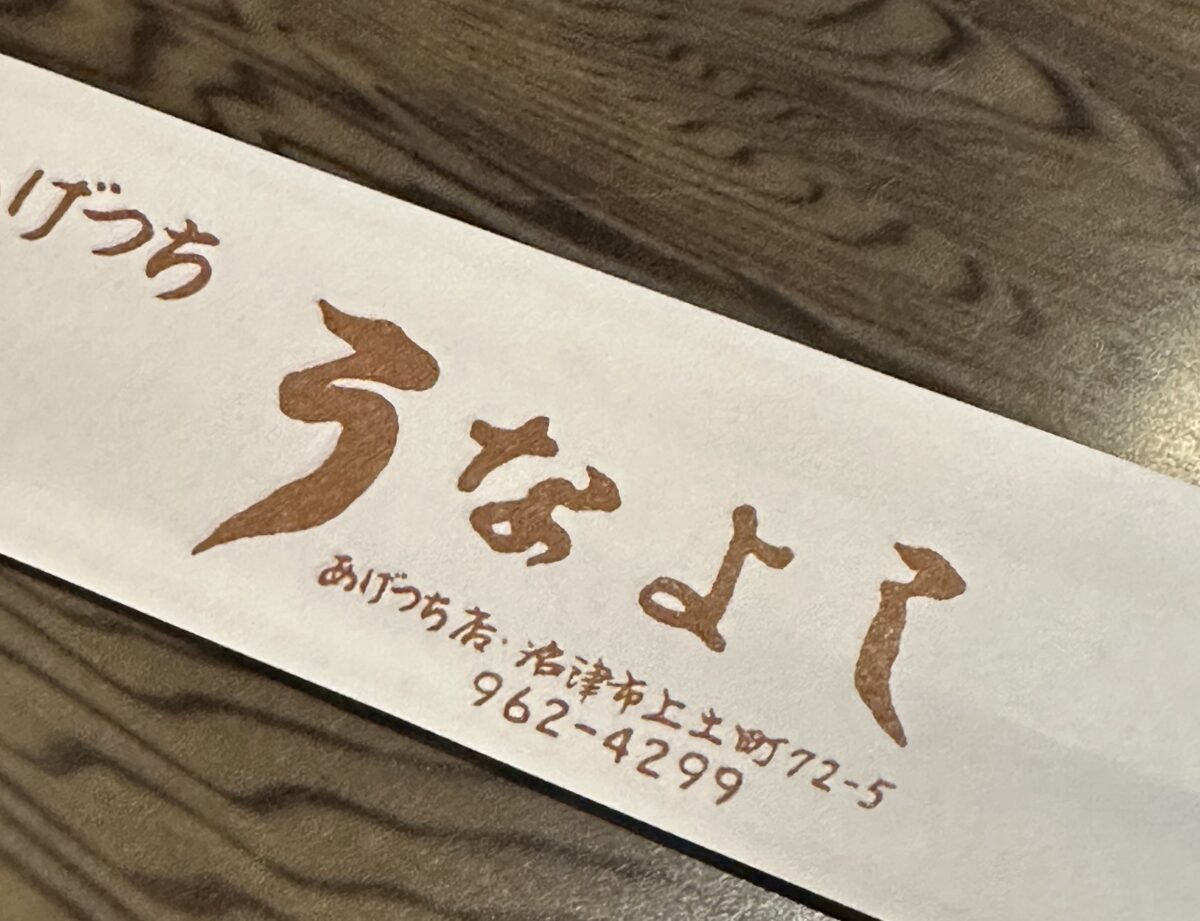 あげつち
うなよし
あげつち店・沼津市上土町72-5
962-4299